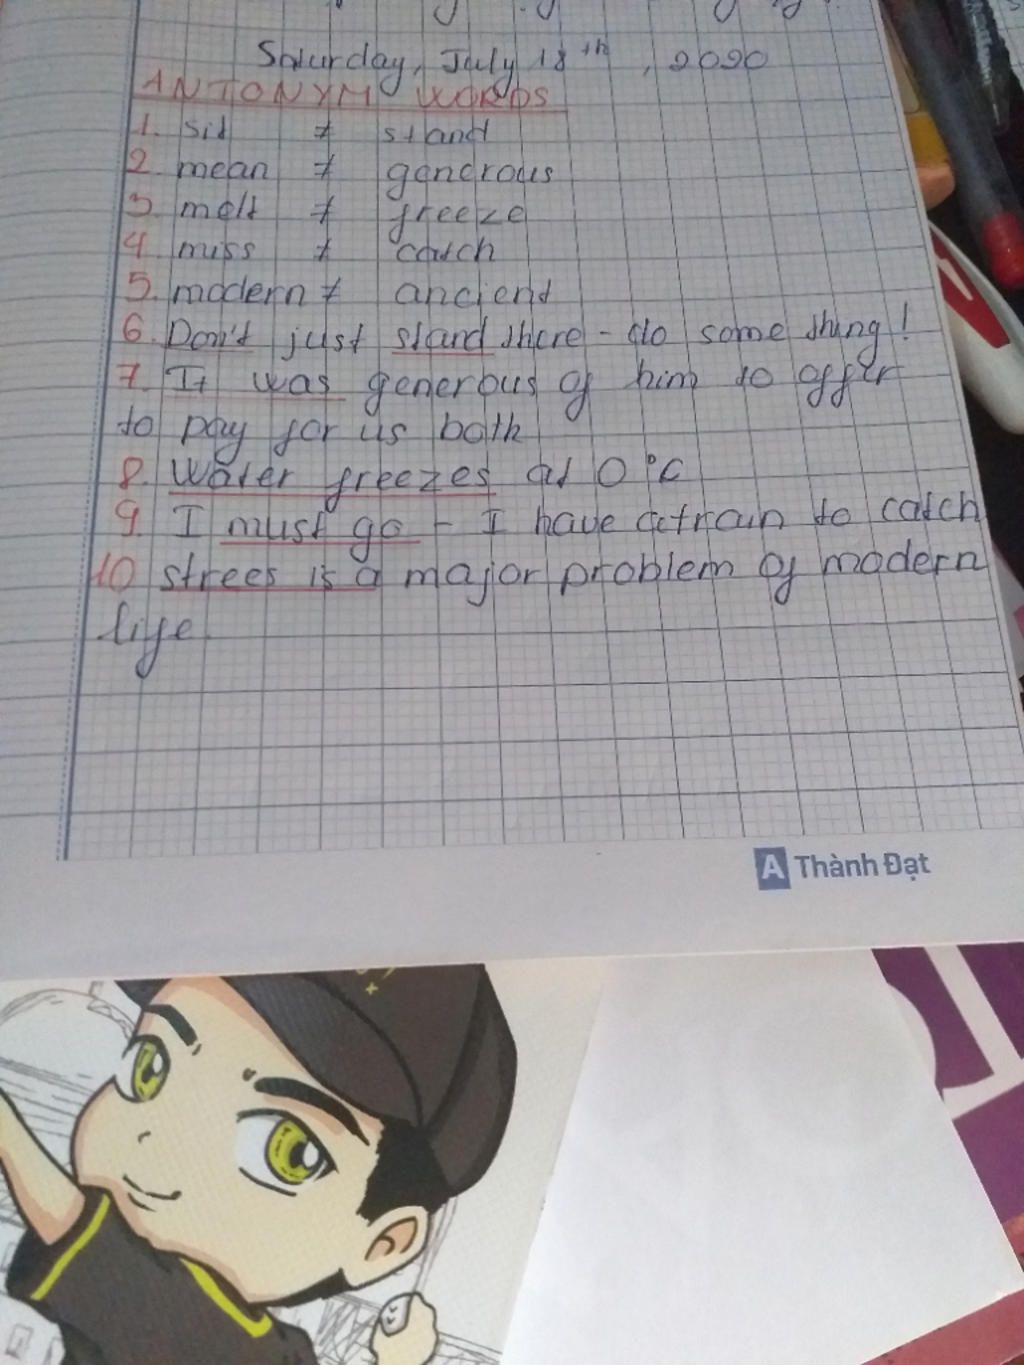 Saturday, July 18th, 2020
ANTONYM WORDS
1. sit ≠ stand
2. mean ≠ generous
3. melt ≠ freeze
4. miss ≠ catch
5. modern ≠ ancient
6. Don't just stand there - do some thing!
7. It was generous of him to offer
to pay for us both
8. Water freezes at 0°C
9. I must go - I have a train to catch
10 strees is a major problem of modern
life.
A Thành Đạt